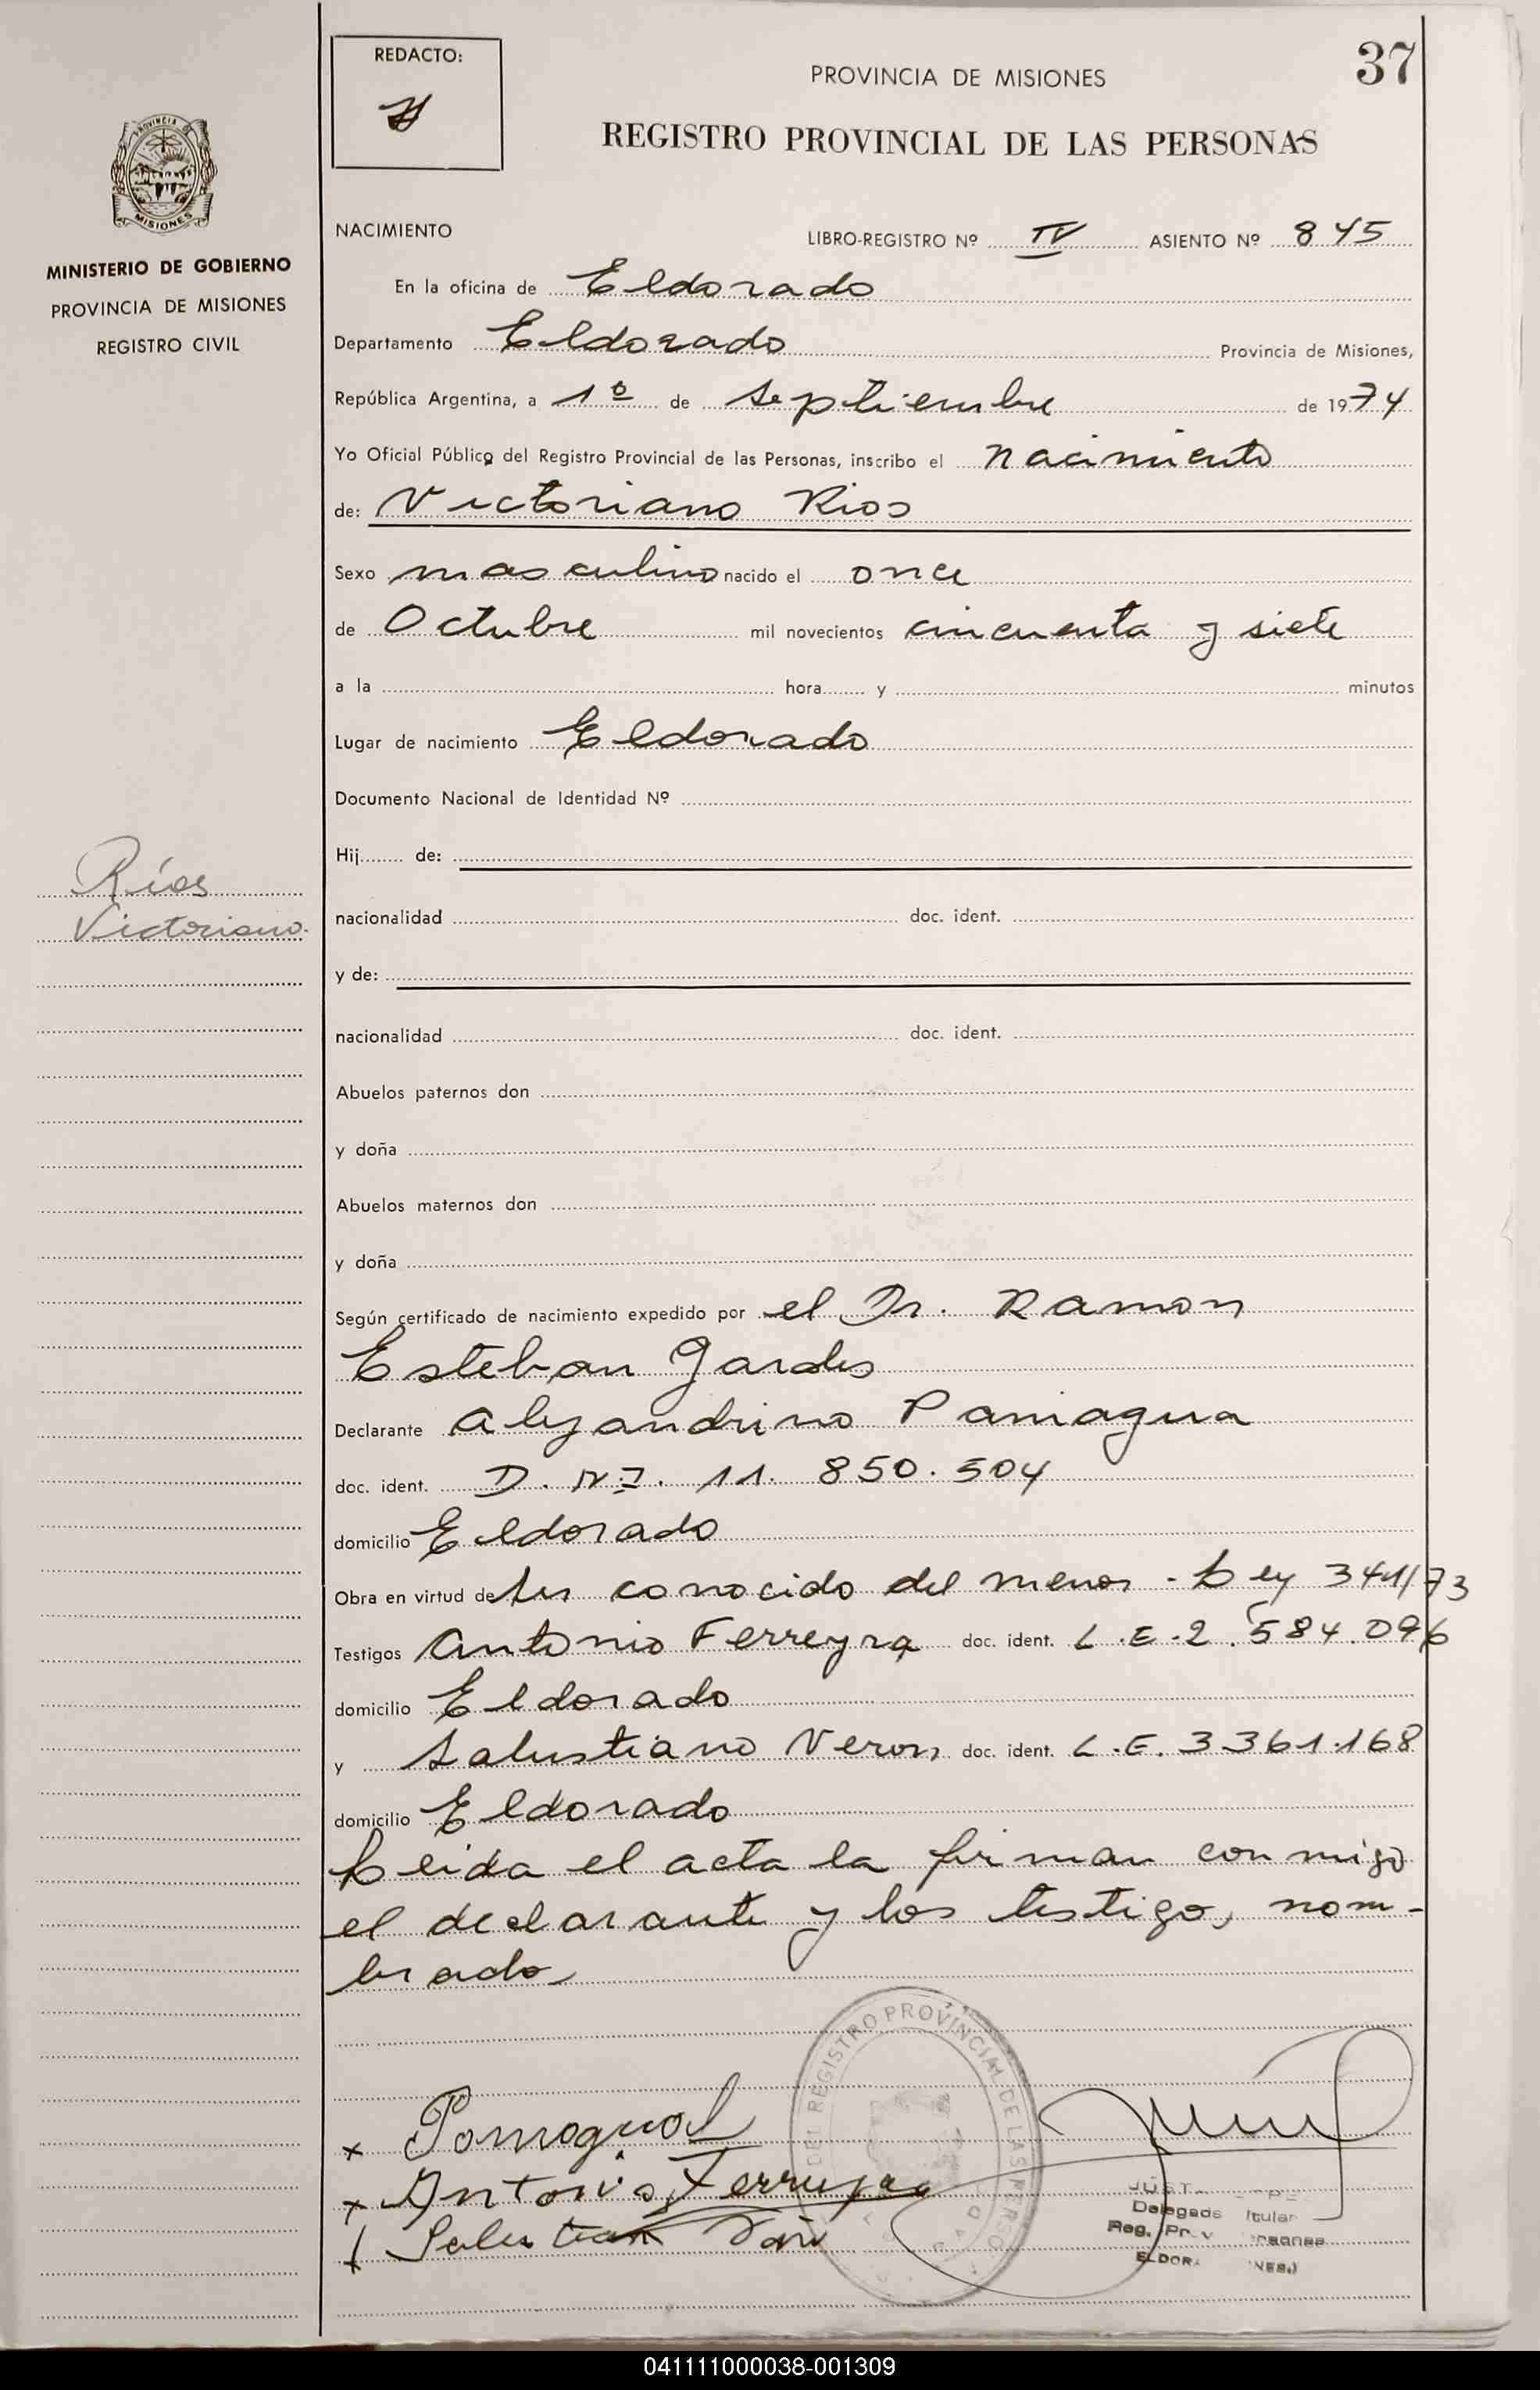 REDACTO:
PROVINCIA DE MISIONES
37
REGISTRO PROVINCIAL DE LAS PERSONAS
PROVINCIA DE
MISIONES
MINISTERIO DE GOBIERNO
PROVINCIA DE MISIONES
REGISTRO CIVIL
NACIMIENTO LIBRO-REGISTRO Nº IV ASIENTO Nº 845
En la oficina de Eldorado
Departamento Eldorado Provincia de Misiones,
República Argentina, a 1º de Septiembre de 1974
Yo Oficial Público del Registro Provincial de las Personas, inscribo el nacimiento
de: Victoriano Rios
Sexo masculino nacido el once
de Octubre mil novecientos cincuenta y siete
a la hora y minutos
Lugar de nacimiento Eldorado
Documento Nacional de Identidad Nº
Hij de:
Ríos
Victoriano.
nacionalidad doc. ident.
y de:
nacionalidad doc. ident.
Abuelos paternos don
y doña
Abuelos maternos don
y doña
Según certificado de nacimiento expedido por el Dr. Ramon
Esteban Gardes
Declarante Alejandrino Paniagua
doc. ident. D.N.I. 11.850.504
domicilio Eldorado
Obra en virtud de ser conocido del menor - Ley 341/73
Testigos Antonio Ferreyra doc. ident. L.E.2.584.096
domicilio Eldorado
y Salustiano Veron doc. ident. L.E. 3361.168
domicilio Eldorado
Leida el acta la firman conmigo
el declarante y los testigos nom-
brados
DEL REGISTRO PROVINCIAL DE LAS PERSO
x
x Antonio Ferreyra
Delegado itular
Reg. Prov
ELDOR
041111000038-001309